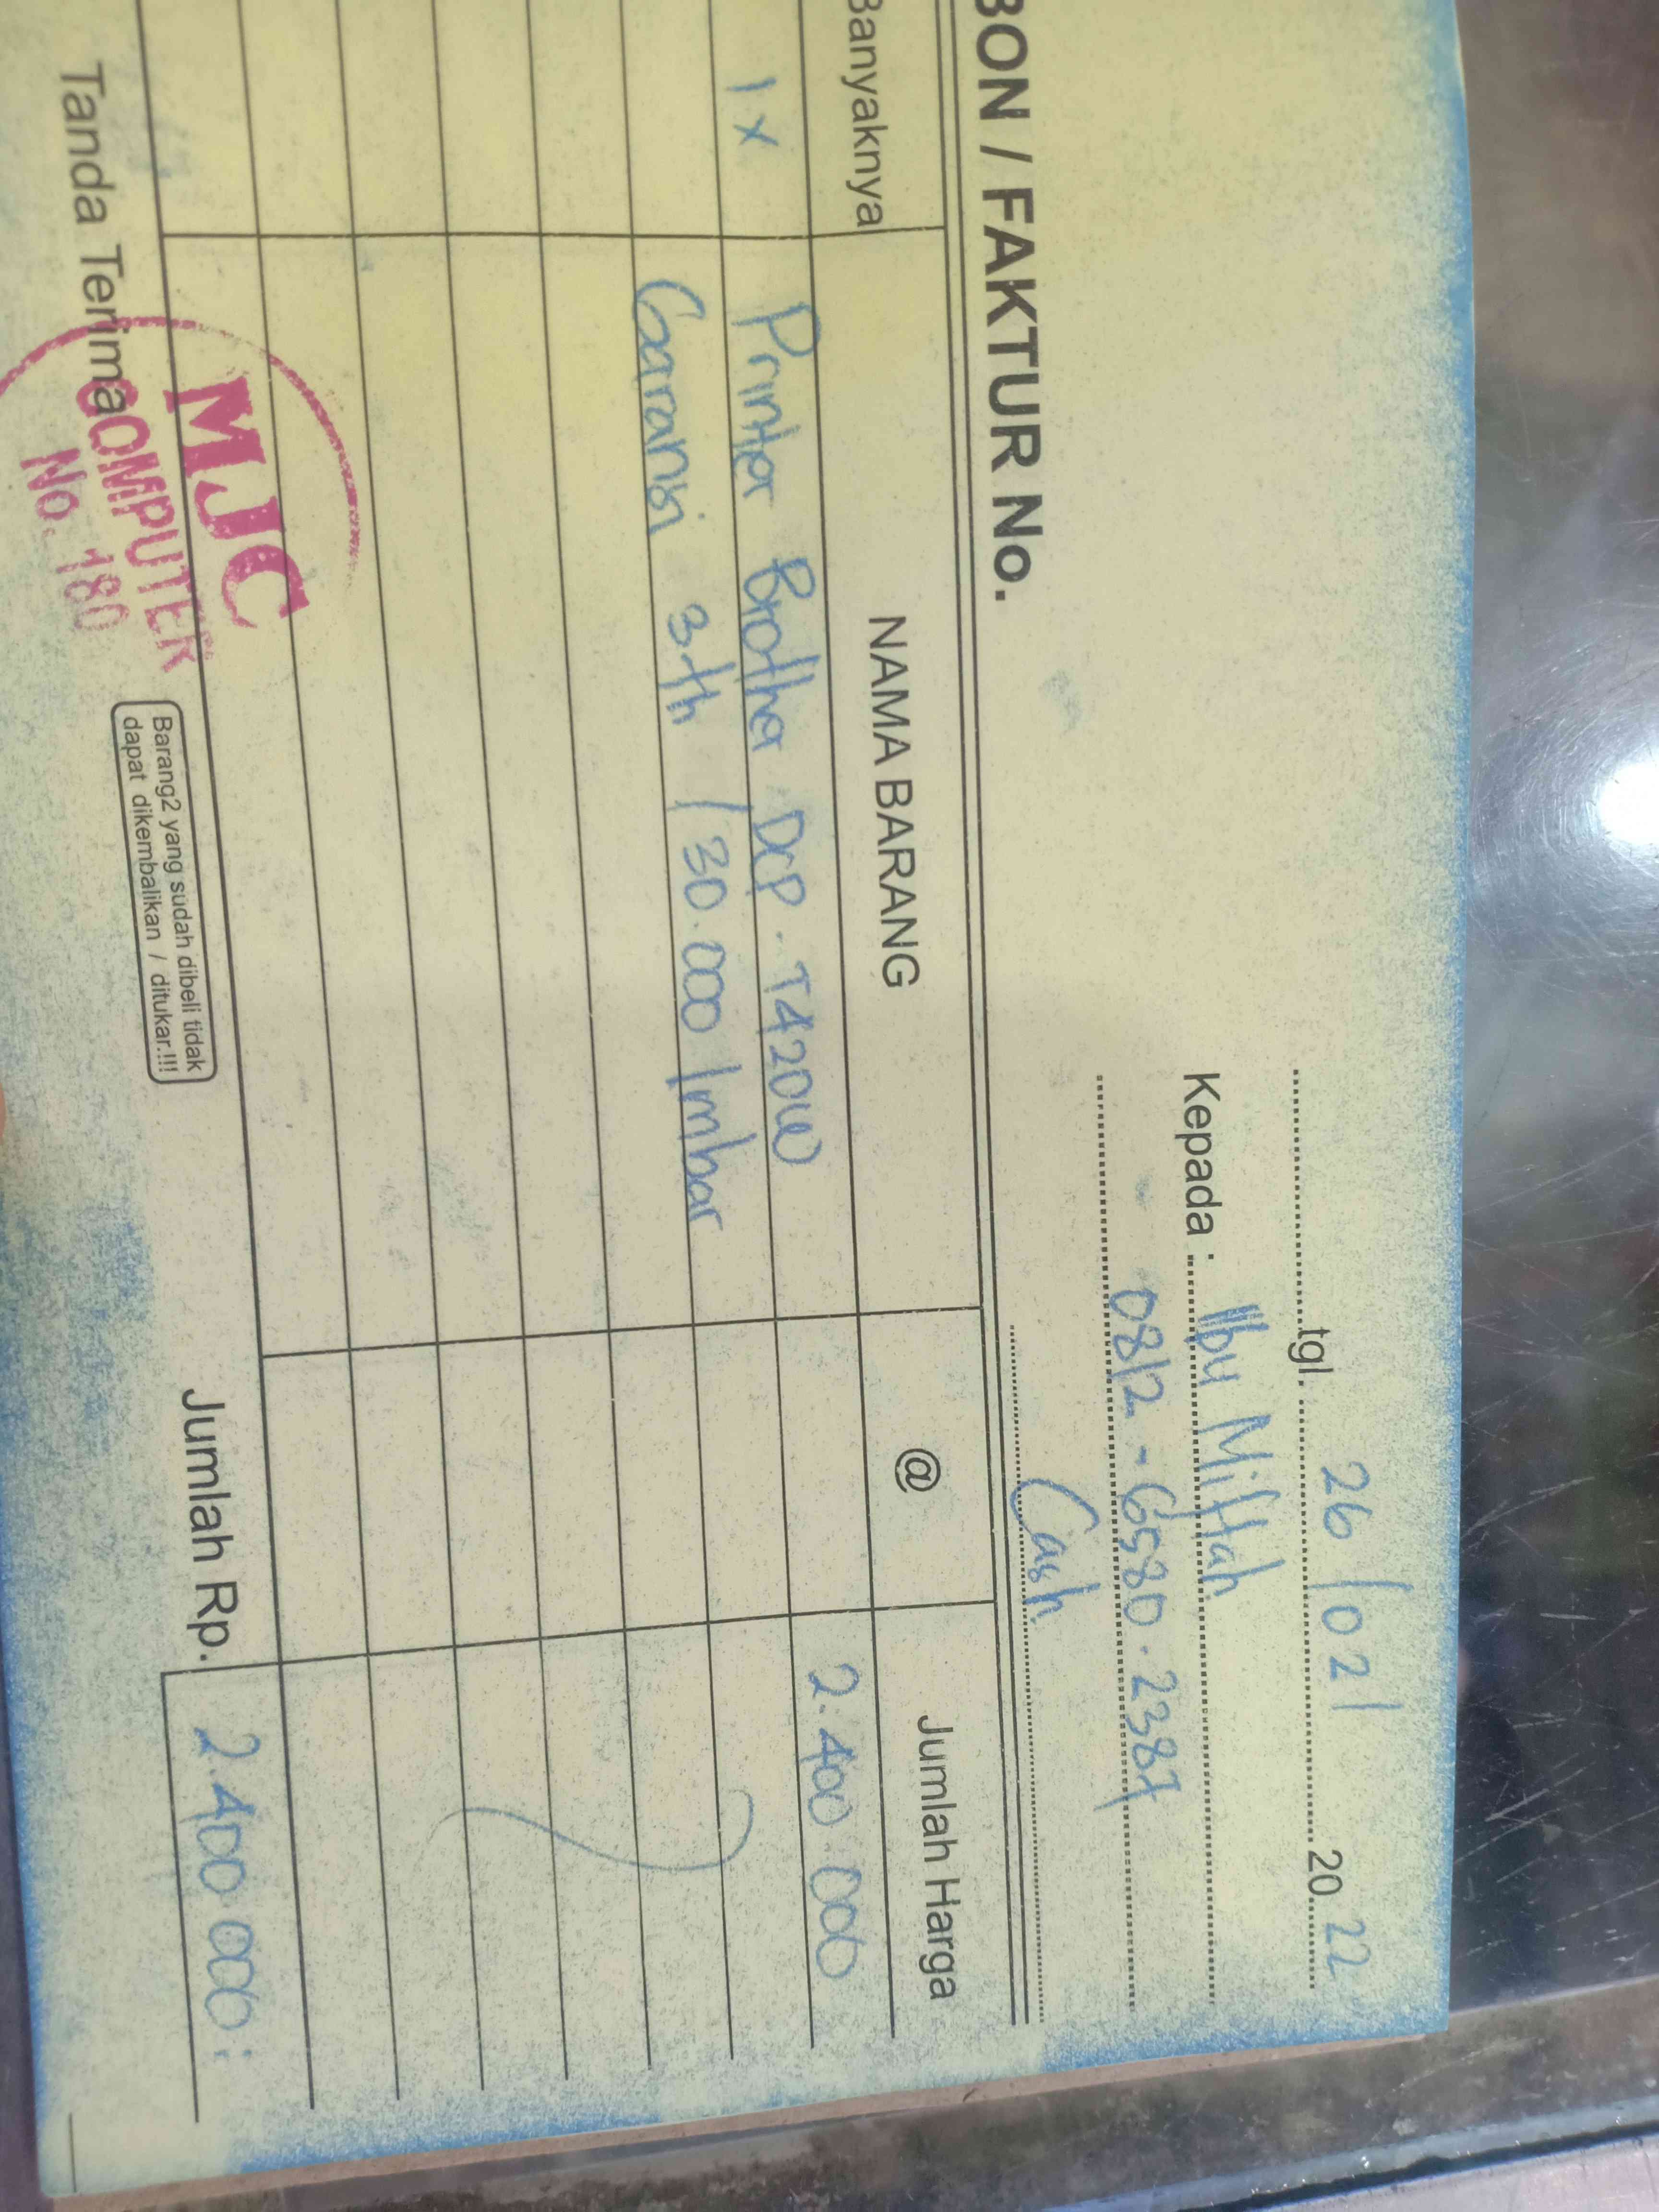 tgl. 26/02/ 2022
Kepada : Ibu Miftah
0812-6580.2387
BON / FAKTUR No.
Cash
Banyaknya NAMA BARANG @ Jumlah Harga
1x Printer Brother DCP.T420W 2.400.000
Garansi 3th / 30.000 lmbar
Jumlah Rp. 2.400.000:
Tanda Terima
MJC
COMPUTER
No. 180
Barang2 yang sudah dibeli tidak
dapat dikembalikan / ditukar.!!!